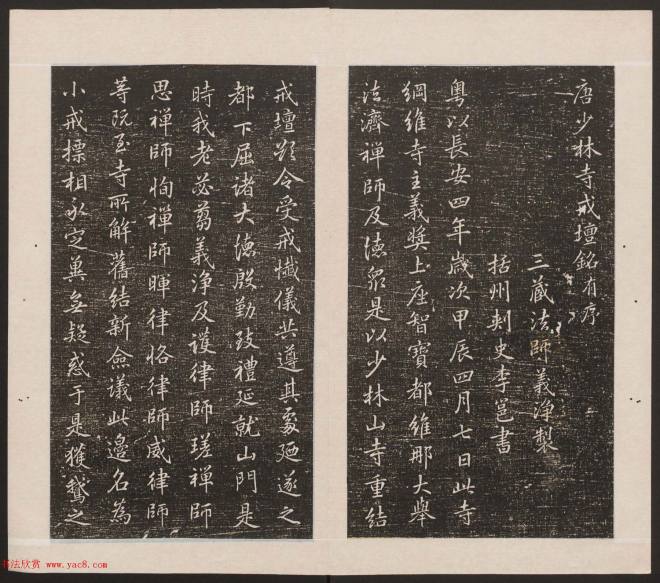 唐少林寺戒壇銘有序
三藏法師義淨製
括州刺史李邕書
粵以長安四年歲次甲辰四月七日此寺
綱維寺主義奬上座智寶都維那大舉
法濟禪師及德衆是以少林山寺重結
戒壇欲令受戒懺儀共遵其處廼遂之
都下屈諸大德殷勤致禮延就山門是
時我老苾蒭義淨及護律師瑳禪師
思禪師恂禪師暉律師恪律師威律師
等既至寺所解舊結新僉議此邊名為
小戒摽相永定兾無疑惑于是獲鵝之
书法欣赏 www.yac8.com